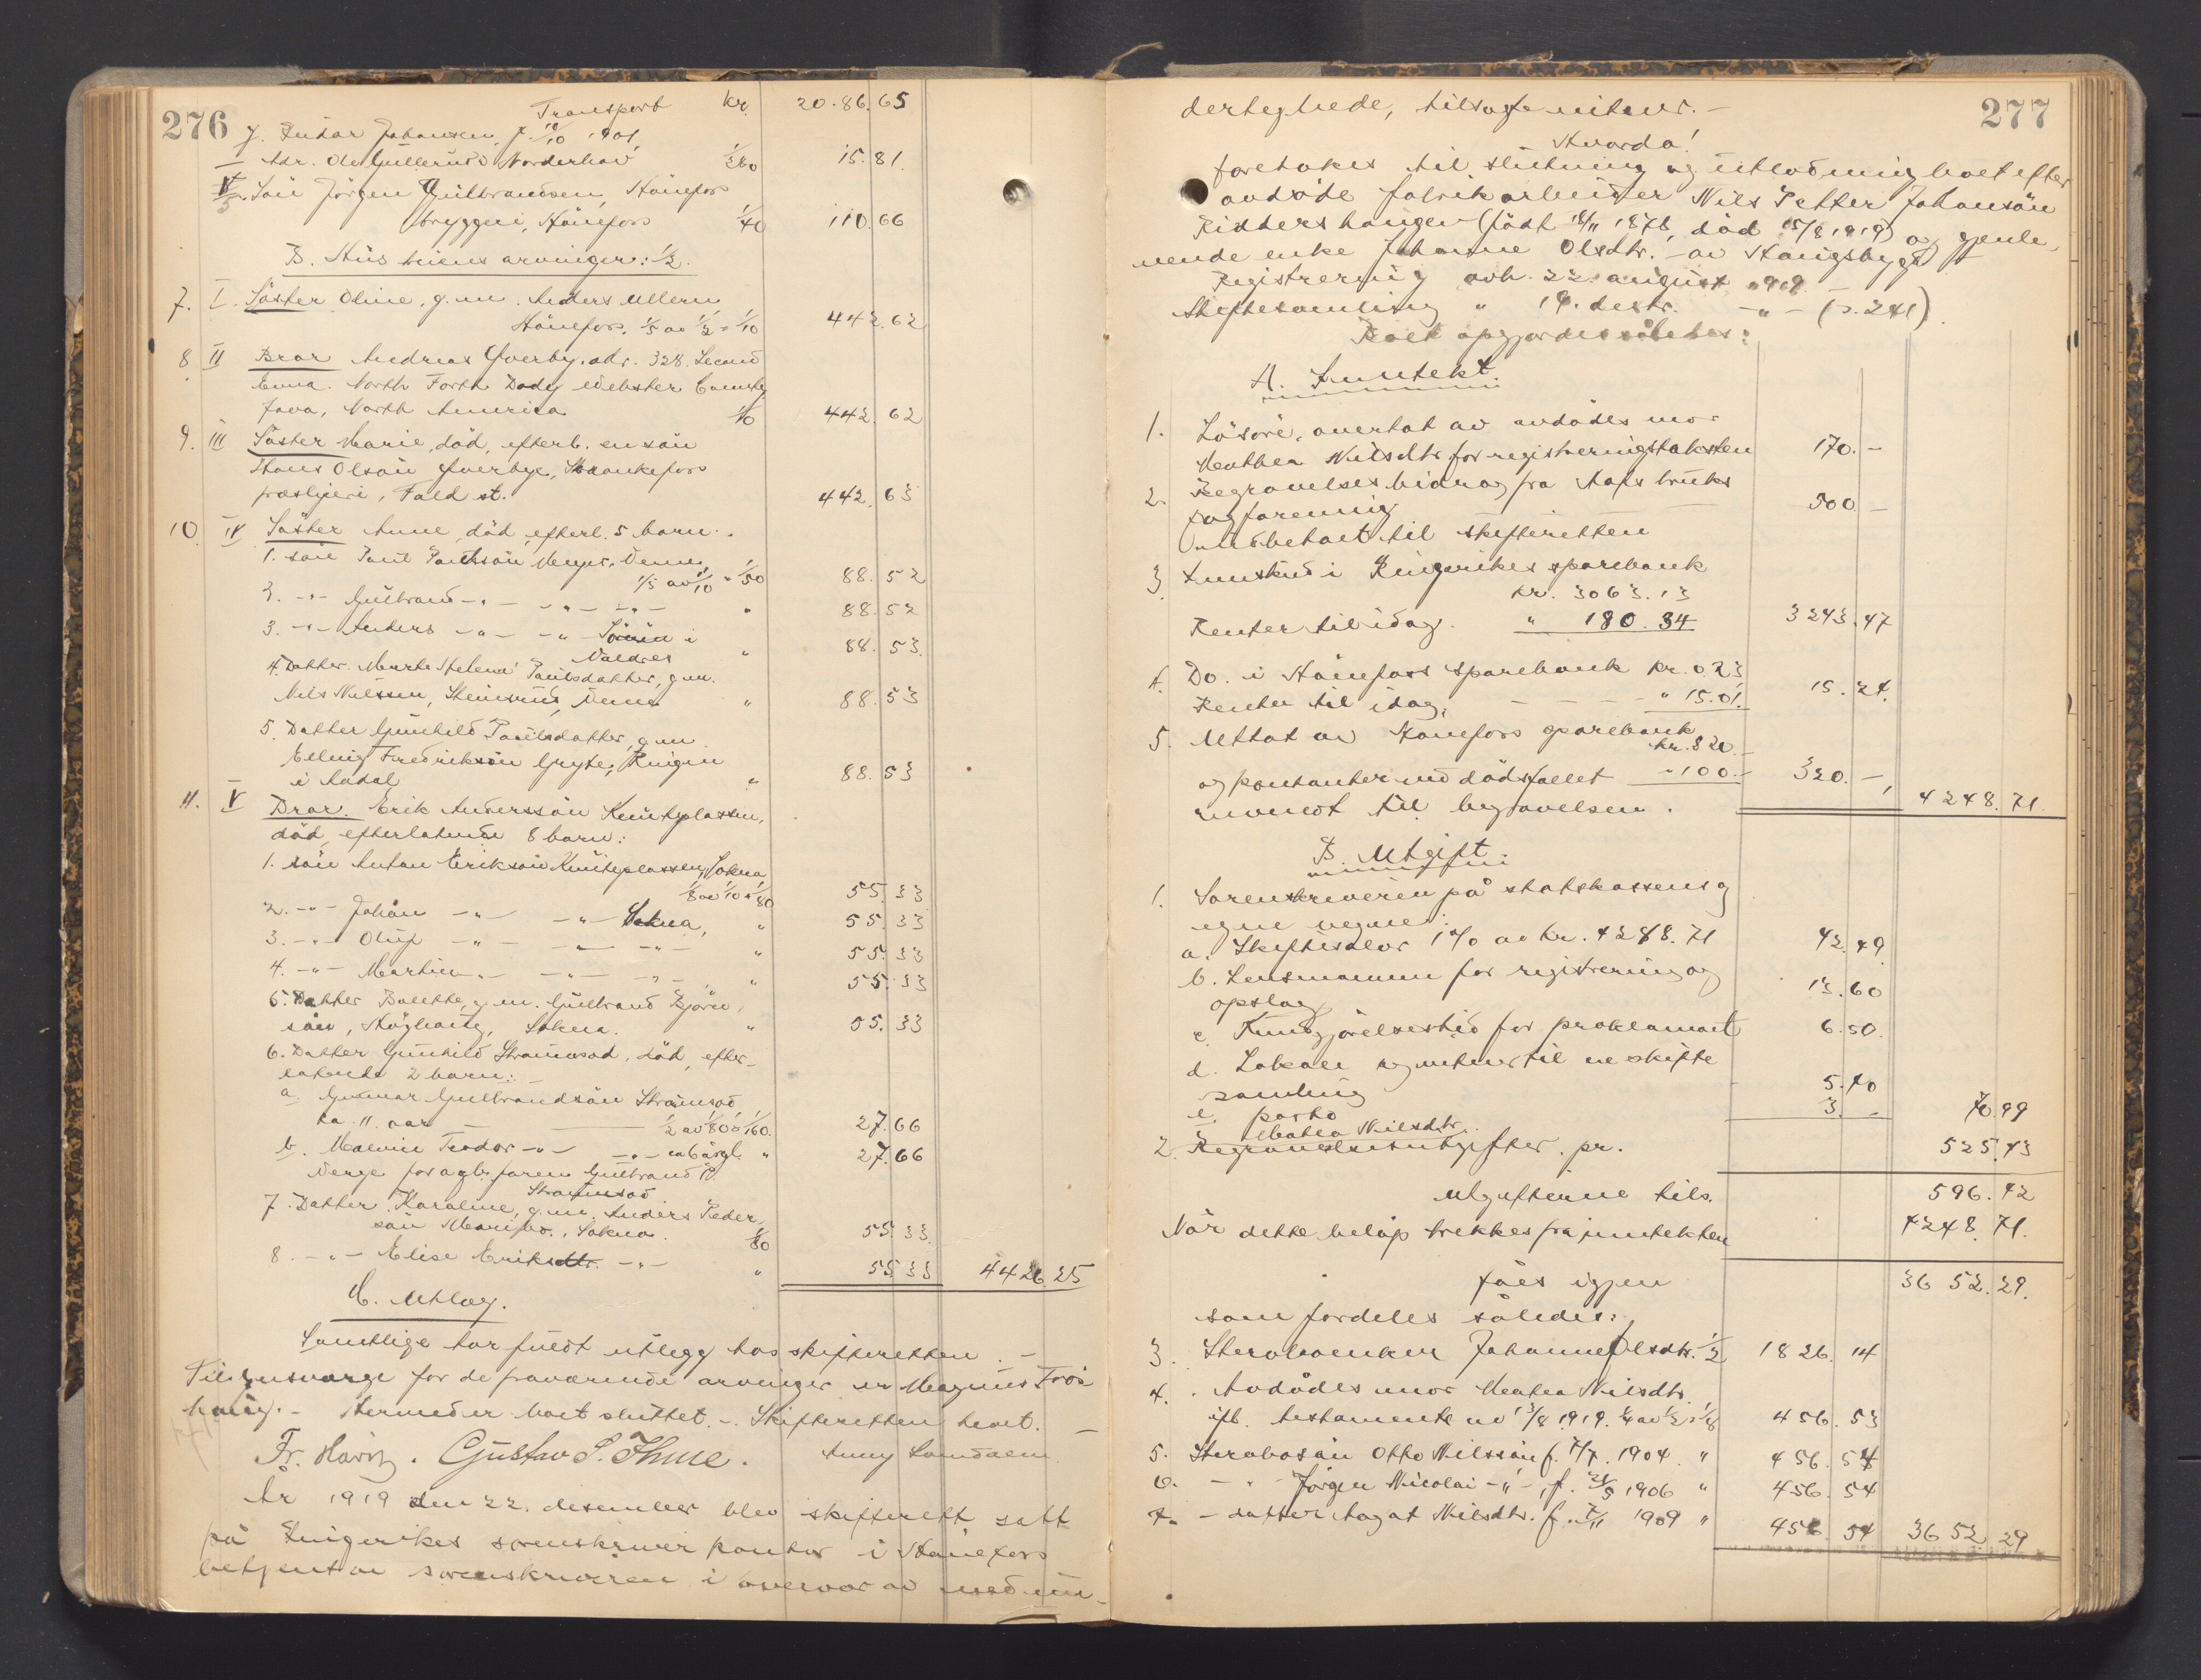 276
Transport kr. 20.86.65
J. Indar Johansen f. 10/10 1901,
Adr. Ole Gulleruds Norderhov 1/280 15.81.
V. Sön Jörgen Gulbrandsen, Hönefoss
bryggeri, Hönefoss 1/40 110.66
B. Hustruens arvinger: 1/2.
7. I. Söster Oline, g.m. Anders Ullern
Hönefoss. 1/5 av 1/2 = 1/10 442.62
8 II Bror Andreas Överby. adr. 328. Second
North Forth Dody Webster County
Jova, North America 1/10 442.62
9. III Söster Marie, död, efterl. en sön
Hans Olsön Överbye, Skrankefoss
presligeri, Fald st. 442.63
10. IV Söster Anne, död, efterl. 5 barn.
1. sön Paul Paulsön 1/5 av 1/10 = 1/50 88.52
2. -"- Gulbrand -"- -"- -"- " 88.52
3. -"- Anders -"- -"- i
Valdres " 88.53.
4. Datter Marte Helene Paulsdatter, g.m.
Nils Nilssen, Steinsrud, " 88.53
5. Datter Gunhild Paulsdatter, g.m.
Elling Fredriksön Gryte, Ringen
i Aadal " 88.53
11. V Bror. Erik Anderssön Knuteplassen,
död, efterlatende 8 barn:
1. sön Anton Eriksön Knuteplassen, Sokna
1/8 av 1/10 = 1/80 55.33
2. -"- Johan -"- -"- Sokna, " 55.33
3. -"- Oluf -"- -"- -"- " 55.33
4. -"- Martin -"- -"- -"- " 55.33
5. Datter Bolette, g.m. Gulbrand Björn-
sön, Höghaug, Sokna. " 55.33
6. Datter Gunhild Strömsod, död, efter-
latende 2 barn:
a. Gunnar Gulbrandsön Strömsod
ca. 11 aar 1/2 av 1/80 = 1/160. 27.66
b. Teodor -"- -"- ca 6 årgl. " 27.66
Verge for agb. faren Gulbrand P.
Strömsod
7. Datter Karoline, g.m. Anders Peder-
sön Sokna. 1/80 55.33.
8. -"- Elise Eriksdtr. -"- " 55 33 4426.25
C. Utlæg.
Samtlige har fuldt utlegg hos skifteretten. -
Tilsynsverge for de fraværende arvinger er Magnus Frös-
haug. - Hermed er boet sluttet. - Skifteretten hevet. -
Fr. . Gustav S. Thue. Anny
År 1919 den 22. desember blev skifterett satt
på Ringerikes sorenskriverkontor i Hönefoss
betjent av sorenskriveren i overvær av med un-
277
dertegnede, tilsagte vitner. -
Hvorda!
foretokes til slutning og utlodning boet efter
avdöde fabrikarbeider Nils Petter Johansön
Riddershaugen (födt 18/11 1878, död 15/8 1919) og gjenle-
vende enke Johanne Olsdtr. - av Haugsbygd
Registrering avh. 22 august 1919.
Skiftesamling " 19. desbr. -"- (s. 241).
Boet opgjordes således:
A. Inntekt.
1. Lösöre, overtat av avdödes mor
Mathea Nilsdtr for registreringstaksten 170.-
2. Begravelsesbidrag fra Hofs bruks
fagforening 500.-
innbetalt til skifteretten
3. Innskud i Ringerikes sparebank
kr. 3063.13
Renter til idag. " 180.34 3243.47
4. Do. i Hönefoss sparebank kr. 0.23
Renter til idag, - - - " 15.01. 15.24.
5. Uttat av Hönefoss sparebank
kr. 220.-
og kontanter ved dödsfallet " 100.- 320.-,
anvendt til begravelsen. 4248.71.
B. Utgift.
1. Sorenskriveren på statskassens og
egne vegne:
a. Skiftesalær 1% av kr. 4248.71 42.49
b. Lensmannen for registrering og
opslag 13.60
c. Kundgjörelsestid for proklamaet 6.50.
d. Lokale og vitner til en skifte
samling 5.40
e. porto 3.- 70.99
2. Begravelsesutgifter pr. Mathea Nilsdtr. 525.43
Utgifterne tils. 596.42
Når dette belöp trekkes fra inntekten 4248.71.
fåes igjen 3652.29.
som fordeles således:
3. Stervboenken Johanne Olsdtr. 1/2 1826.14
4. Avdödes mor Mathea Nilsdtr.
ifl. testamente av 13/8 1919. 1/4 av 1/2 = 1/8 456.53
5. Sterbosön Otto Nilssön f. 7/7. 1904. " 456.54
6. -"- Jörgen Nicolai -"-, f. 24/5 1906 " 456.54
7. - datter Aagot Nilsdtr. f. 7/11 1909 " 456.54 3652.29